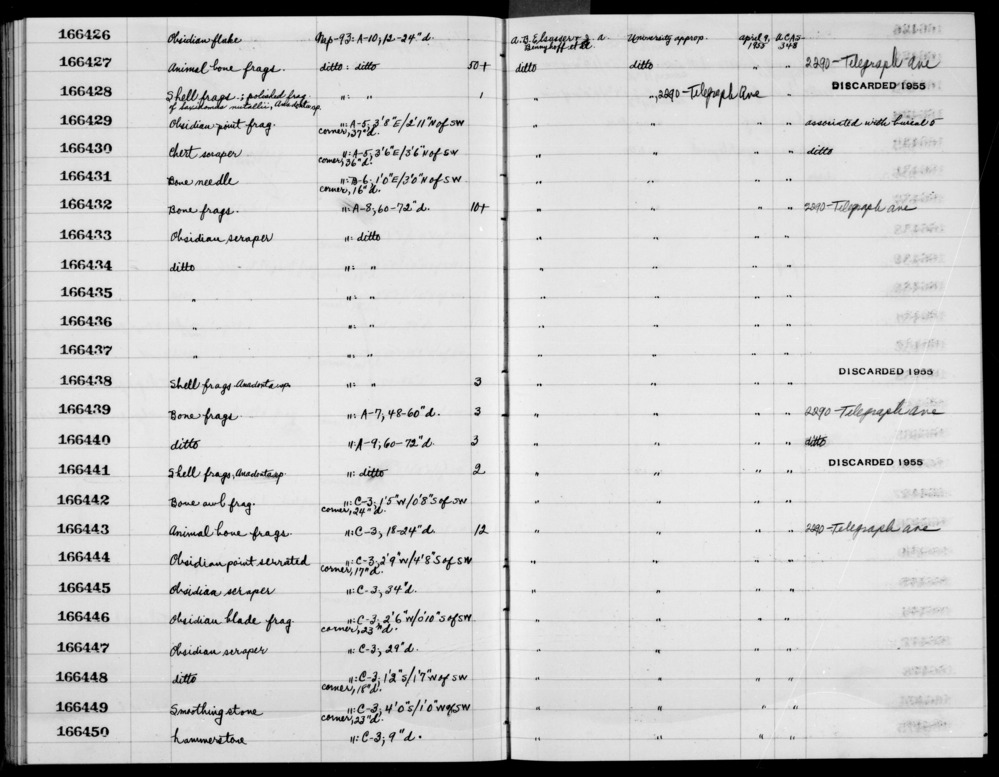 166426 Obsidian flake Nap-93: A-10; 12-24"d. A.B. Elsasser + J. A. Bennyhoff et al. University approp. april 9, 1955 ACAS 348
166427 Animal bone frags. ditto: ditto 50+ ditto ditto " " 2290-Telegraph Ave
166428 Shell frags.; polished frag. of Saxidomus nuttallii, Anadonta sp. ": " 1 " ", 2290-Telegraph Ave " DISCARDED 1955
166429 Obsidian point frag. ": A-5, 3'8"E/2'11"N of SW corner, 37"d. " " " " associated with burial 5
166430 Chert scraper ": A-5, 3'6"E/3'6"N of SW corner, 36"d. " " " " ditto
166431 Bone needle ": B-6; 1'0"E/3'0"N of SW corner, 16"d. " " " "
166432 Bone frags. ": A-8; 60-72"d. 10+ " " " " 2290-Telegraph Ave
166433 Obsidian scraper ": ditto " " " "
166434 ditto ": " " " " "
166435 " ": " " " " "
166436 " ": " " " " "
166437 " ": " " " " "
166438 Shell frags. Anadonta sp. ": " 3 " " " " DISCARDED 1955
166439 Bone frags. ": A-7, 48-60"d. 3 " " " " 2290-Telegraph Ave
166440 ditto ": A-9; 60-72"d. 3 " " " " ditto
166441 Shell frags, Anadonta sp. ": ditto 2 " " " " DISCARDED 1955
166442 Bone awl frag. ": C-3; 1'5"W/0'8"S of SW corner, 24"d. " " " "
166443 Animal bone frags. ": C-3, 18-24"d. 12 " " " " 2290-Telegraph Ave
166444 Obsidian point serrated ": C-3; 2'9"W/4'8"S of SW corner, 17"d. " " " "
166445 Obsidian scraper ": C-3; 34"d. " " " "
166446 Obsidian blade frag. ": C-3; 2'6"W/0'10"S of SW corner, 23"d. " " " "
166447 Obsidian scraper ": C-3, 29"d. " " " "
166448 ditto ": C-3; 1'2"S/1'7"W of SW corner, 18"d. " " " "
166449 Smoothing stone ": C-3; 4'0"S/1'0"W of SW corner, 23"d. " " " "
166450 hammerstone ": C-3; 9"d. " " " "